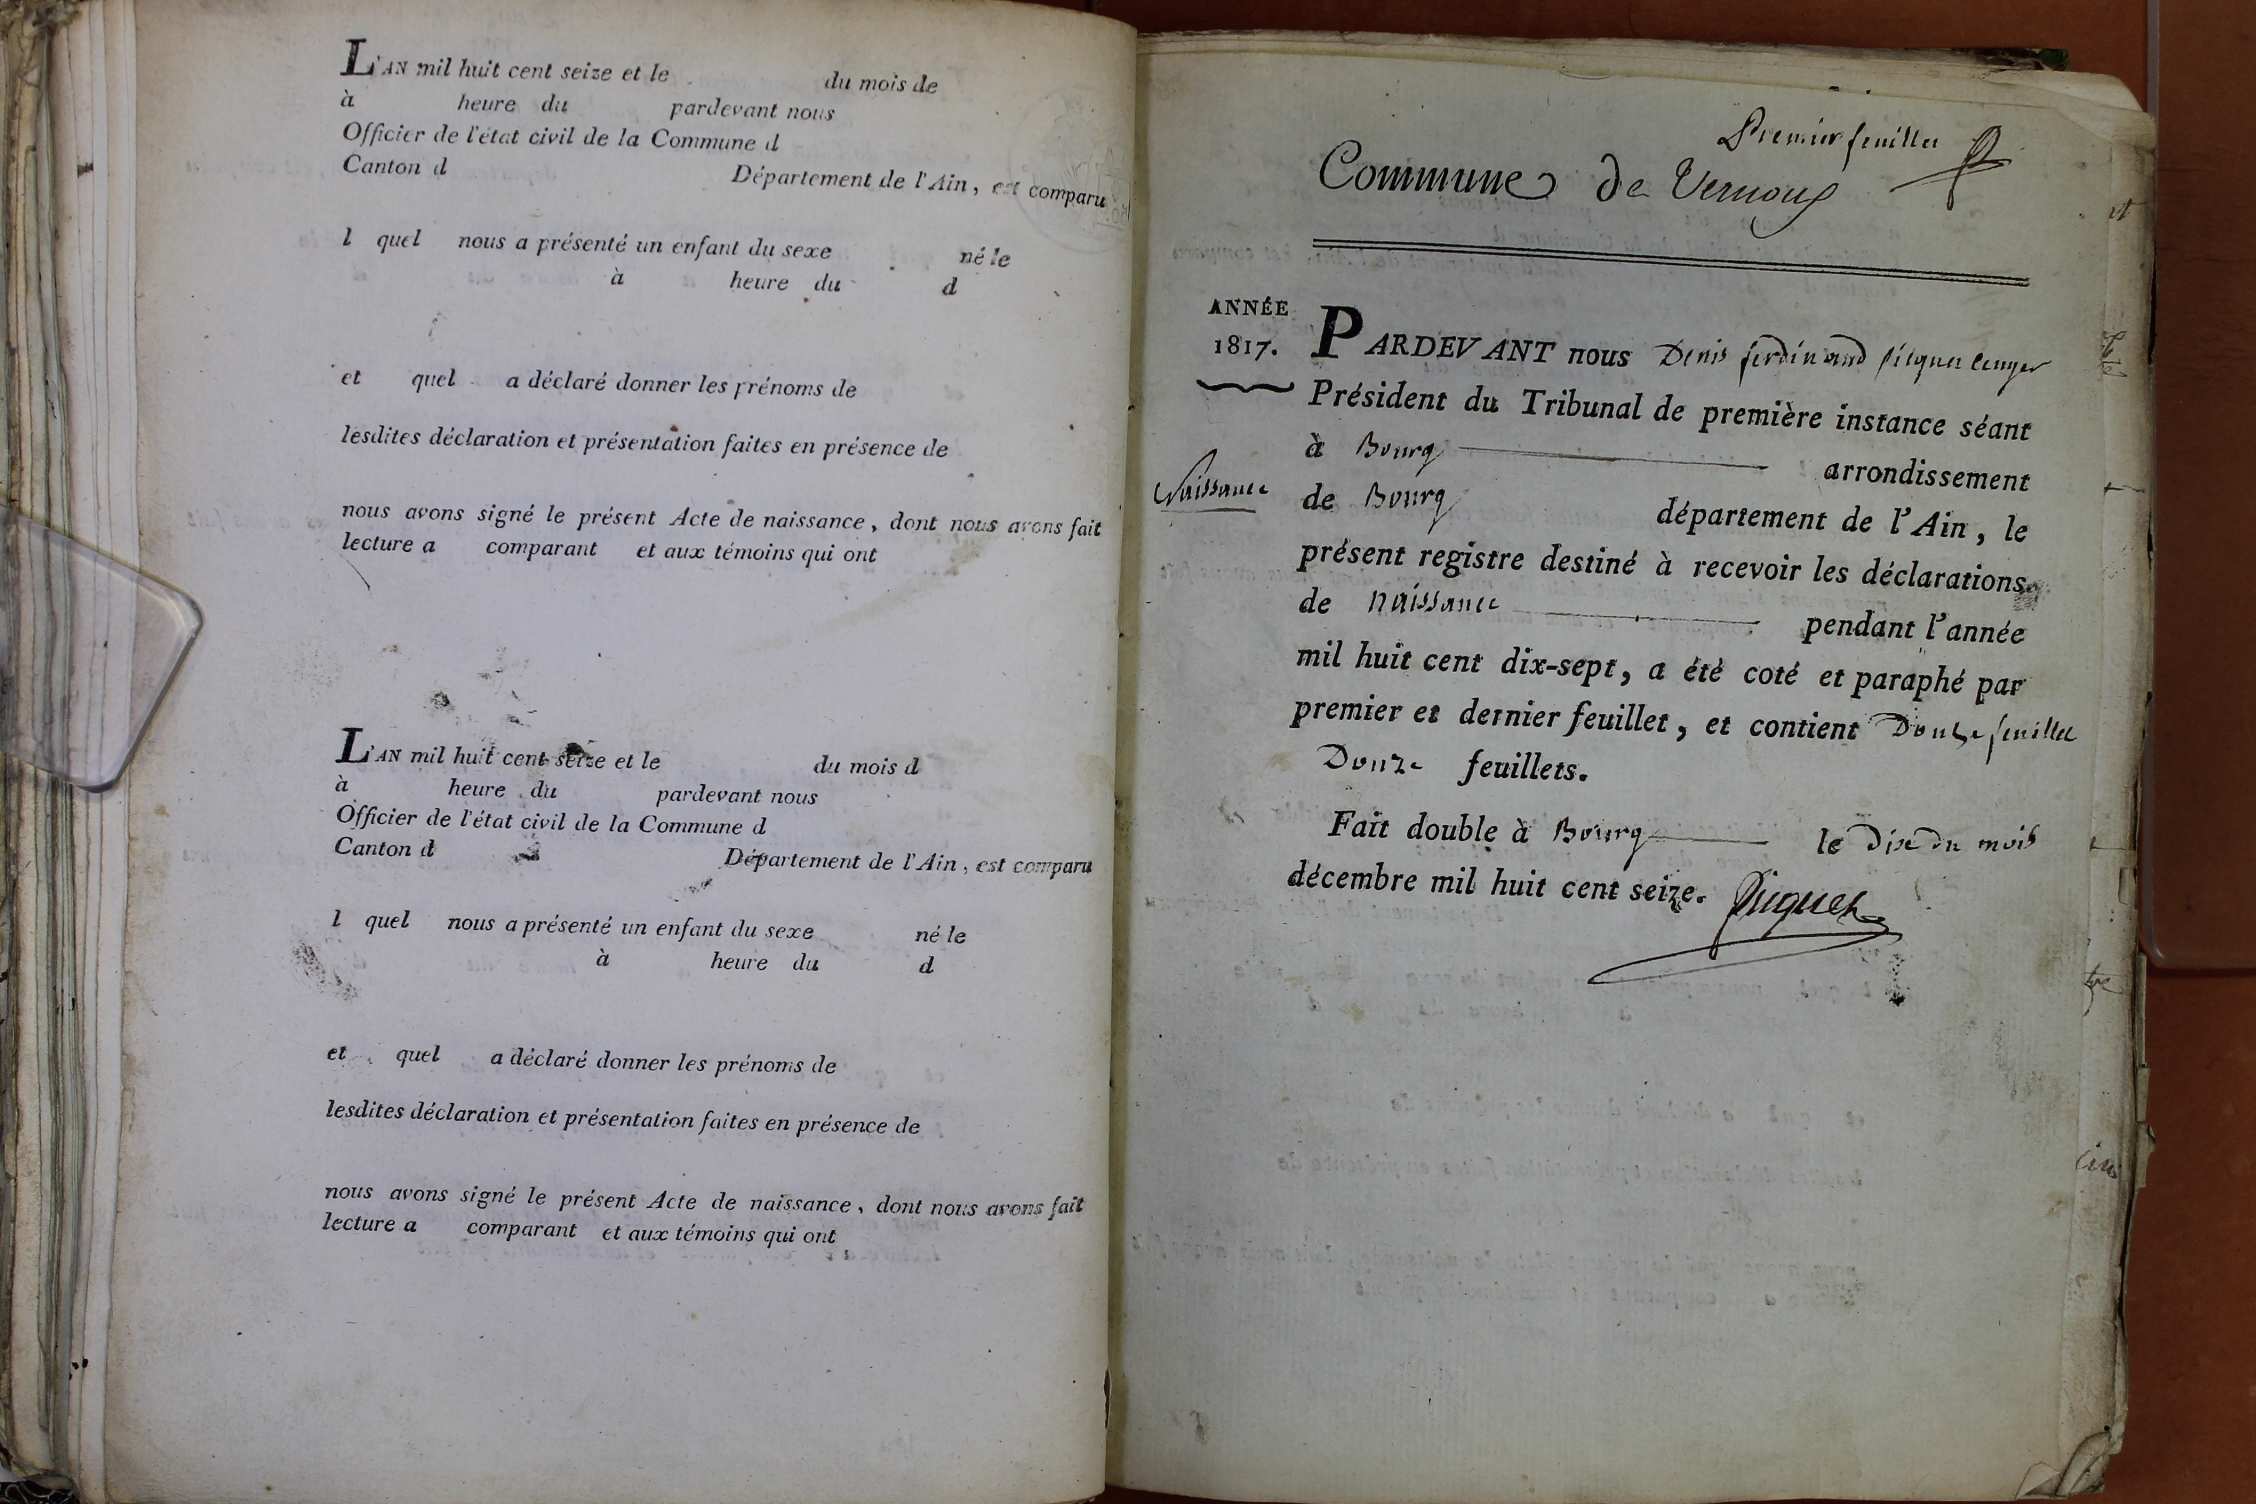 L'AN mil huit cent seize et le du mois de
à heure du pardevant nous
Officier de l'état civil de la Commune d
Canton d Département de l'Ain, est comparu
l quel nous a présenté un enfant du sexe né le
à heure du d
et quel a déclaré donner les prénoms de
lesdites déclaration et présentation faites en présence de
nous avons signé le présent Acte de naissance, dont nous avons fait
lecture a comparant et aux témoins qui ont
L'AN mil huit cent seize et le du mois d
à heure du pardevant nous
Officier de l'état civil de la Commune d
Canton d Département de l'Ain, est comparu
l quel nous a présenté un enfant du sexe né le
à heure du d
et quel a déclaré donner les prénoms de
lesdites déclaration et présentation faites en présence de
nous avons signé le présent Acte de naissance, dont nous avons fait
lecture a comparant et aux témoins qui ont
Premier feuillet
Commune de Vernoux
ANNÉE
1817.
Naissance
PARDEVANT nous Denis ferdinand
Président du Tribunal de première instance séant
à Bourg arrondissement
de Bourg département de l'Ain, le
présent registre destiné à recevoir les déclarations
de naissance pendant l'année
mil huit cent dix-sept, a été coté et paraphé par
premier et dernier feuillet, et contient Douze feuillet
Douze feuillets.
Fait double à Bourg le Dix du mois
décembre mil huit cent seize. Picquet